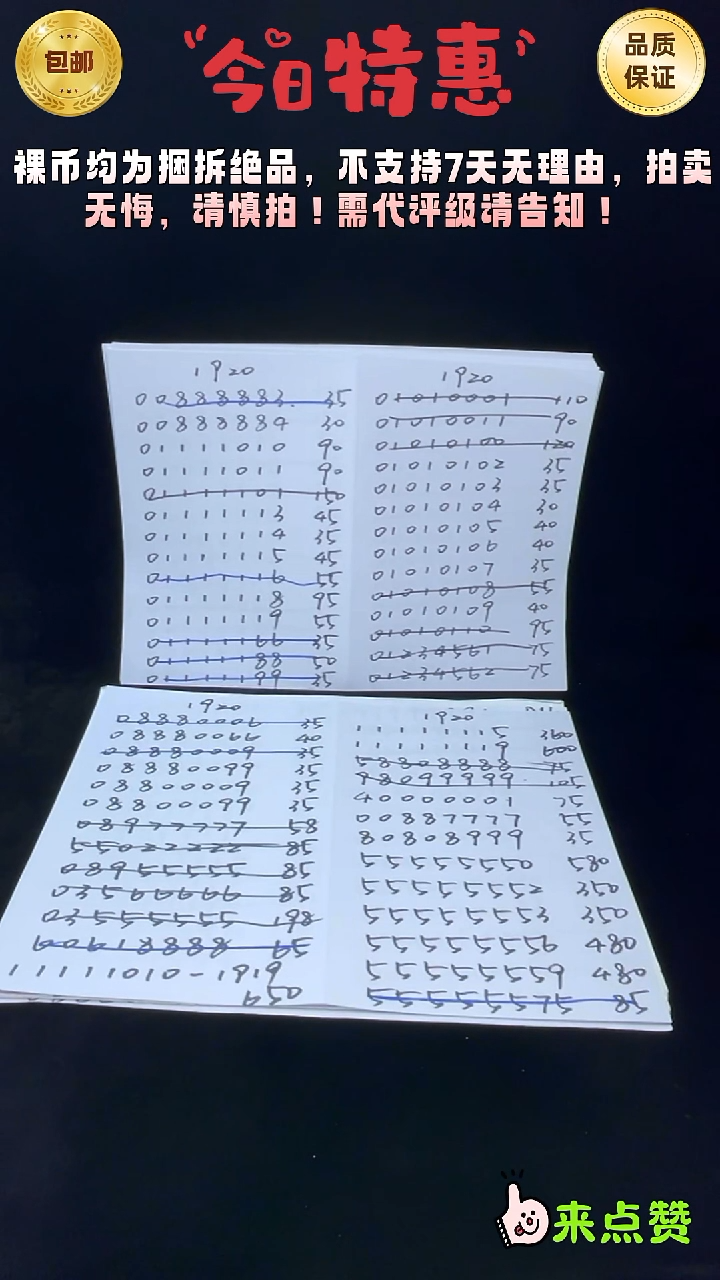 包邮
今日特惠
品质
保证
裸币均为捆拆绝品，不支持7天无理由，拍卖
无悔，请慎拍！需代评级请告知！
1920
00888883. 35
00888884 30
01111010 90
01111011 90
01111101 150
01111113 45
01111114 35
01111115 45
01111116 55
01111118 95
01111119 55
01111166 35
01111188 50
01111199 35
1920
01010001 110
01010011 90
01010100 120
01010102 35
01010103 35
01010104 30
01010105 40
01010106 40
01010107 35
01010108 55
01010109 40
01010110 95
01234561 75
01234562 75
1920
08880006 35
08880066 40
08880009 35
08880099 35
08800009 35
08800099 35
08977777 58
55022222 85
08955555 85
03566666 85
03555555 198
60618888 65
11111010-1919
650
1920
11111115 360
11111119 600
58808888 75
98099999 105
40000001 75
00887777 55
80808999 35
55555550 580
55555552 350
55555553 350
55555556 480
55555559 480
55555575 85
来点赞